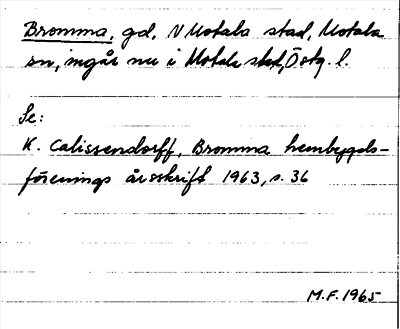 Bromma, gd, N Motala stad, Motala
sn, ingår nu i Motala stad, Östg. l.
Se:
K. Calissendorff, Bromma hembygds-
förenings årsskrift 1963, s. 36
M.F. 1965